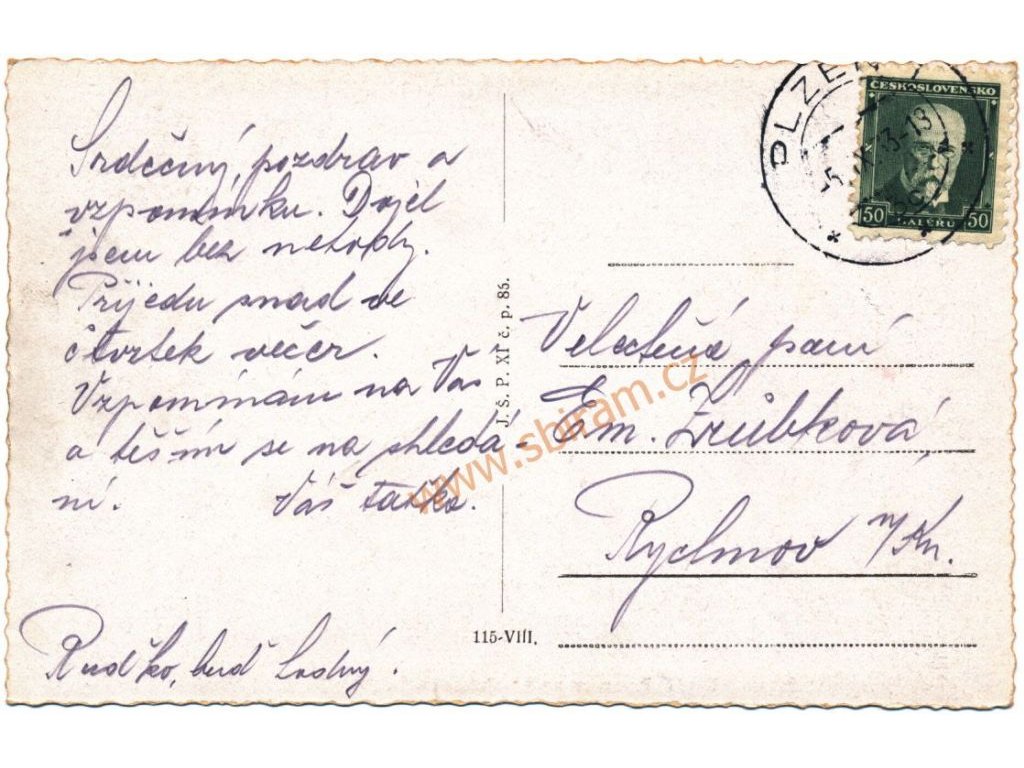 Srdečný pozdrav a
vzpomínku. Dojel
jsem bez nehody.
Přijedu snad ve
čtvrtek večer.
Vzpomínám na Vás
a těším se na shledá-
ní. Váš taťka.
Ruďko, buď hodný.
J. Š. P. XI č. p. 85.
115-VIII.
PLZEŇ
ČESKOSLOVENSKO
50 HALÉRŮ 50
Velectěná paní
Em.
Rychnov n/Kn.
www.sbiram.cz